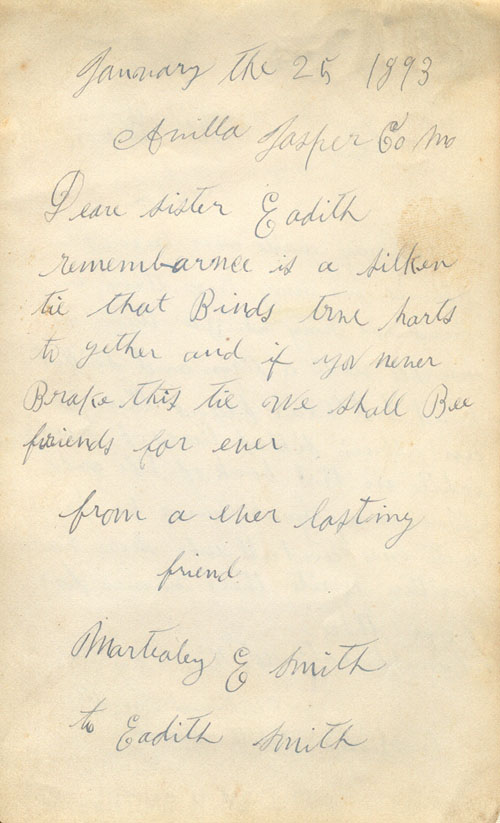 January the 25 1893
Avilla Jasper Co Mo
Deare sister Eadith
remembarnce is a silken
tie that Binds true harts
to gether and if you never
Brake this tie we shall Bee
friends for ever
from a ever lasting
friend
E Smith
to Eadith Smith